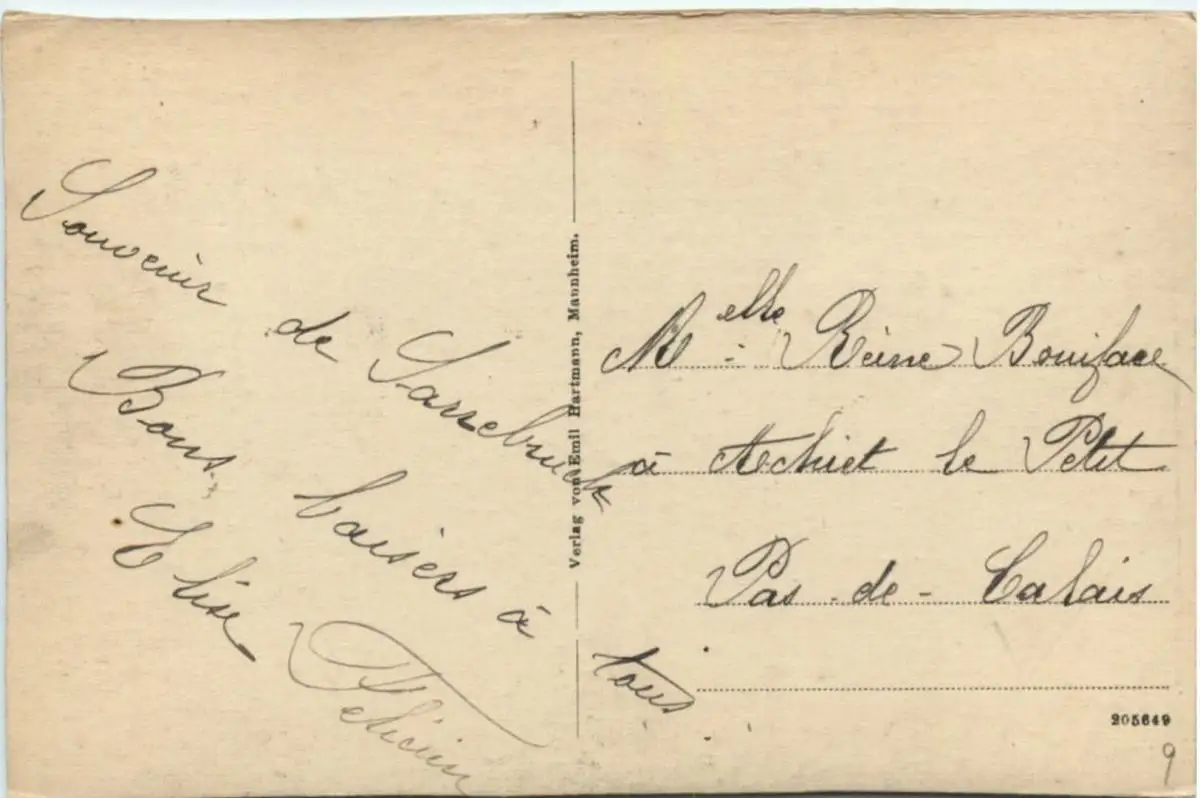 Souvenir de Sarrebruck
Bons baisers à tous
Elise Félicien
Verlag von Emil Hartmann, Mannheim.
Melle Reine Boniface
à Achiet le Petit
Pas-de-Calais
205649
9